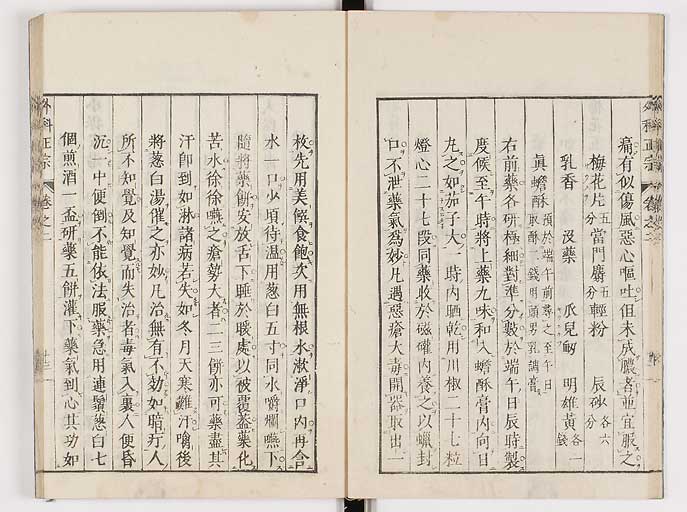 外科正宗 卷之二
痛有似傷風惡心嘔吐但未成膿者並宜服之
梅花片五分當門麝五分輕粉 辰砂各六分
乳香 沒藥 瓜兒血 明雄黃各一錢
真蟾酥預於端午前尋之至午日取酥二錢明頭男乳調膏
右前藥各研極細對準分數於端午日辰時製
度候至午時將上藥九味和入蟾酥膏內向日
丸之如茄子大一時內晒乾用川椒二十七粒
燈心二十七段同藥收於磁罐內養之以蠟封
口不泄藥氣爲妙凡遇惡瘡大毒開器取出一
枚先用美饌食飽次用無根水漱淨口內再含
水一口少頃待温用葱白五寸同水嚼爛嚥下
隨將藥餅安放舌下睡於暖處以被覆蓋藥化
苦水徐徐嚥之瘡勢大者二三餅亦可藥盡其
汗即到如淋諸病若失如冬月天寒難汗嚼後
將葱白湯催之亦妙凡治無有不効如暗疔人
所不知覺及知覺而失治者毒氣入裏人便昏
沉一中便倒不能依法服藥急用連鬚葱白七
個煎酒一盃研藥五餅灌下藥氣到心其功如
外科正宗 卷之二 十三